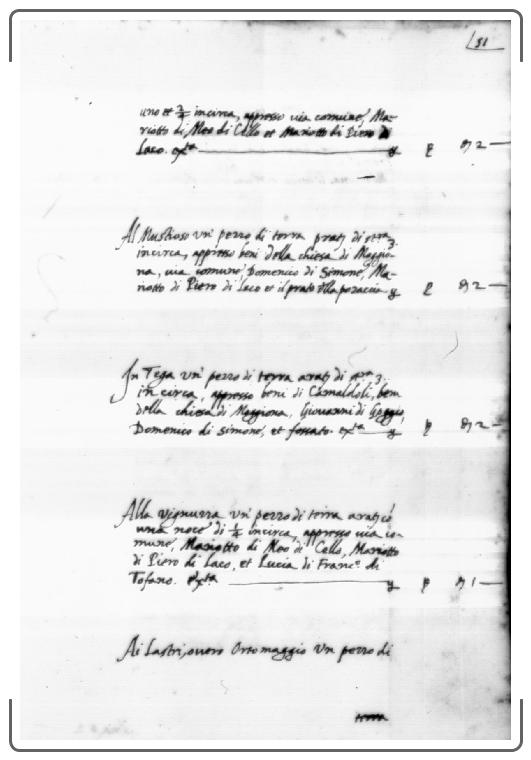 51
uno et 3/4 incirca, appresso via comune, Ma-
riotto di Meo di Cello et Mariotto di Piero di
Laco. exta
Al Mustioso un' pezzo di terra prati di 3.
incirca, appresso beni della chiesa di Moggio-
na, via comune, Domenico di Simone, Ma-
riotto di Piero di Laco et il prato
In Tega un' pezzo di terra arati di 3.
in circa, appresso beni di Camaldoli, beni
della chiesa di Moggiona, Giovanni di Goggio,
Domenico di Simone, et fossato. exta
Alla vignuzza un' pezzo di terra arati cō
una noce di 1/4 incirca, appresso via co-
mune, Mariotto di Meo di Cello, Mariotto
di Piero di Laco, et Lucia di Franc.º di
Tofano. exta
Ai Lastri, overo Ortomaggio un pezzo di
terra